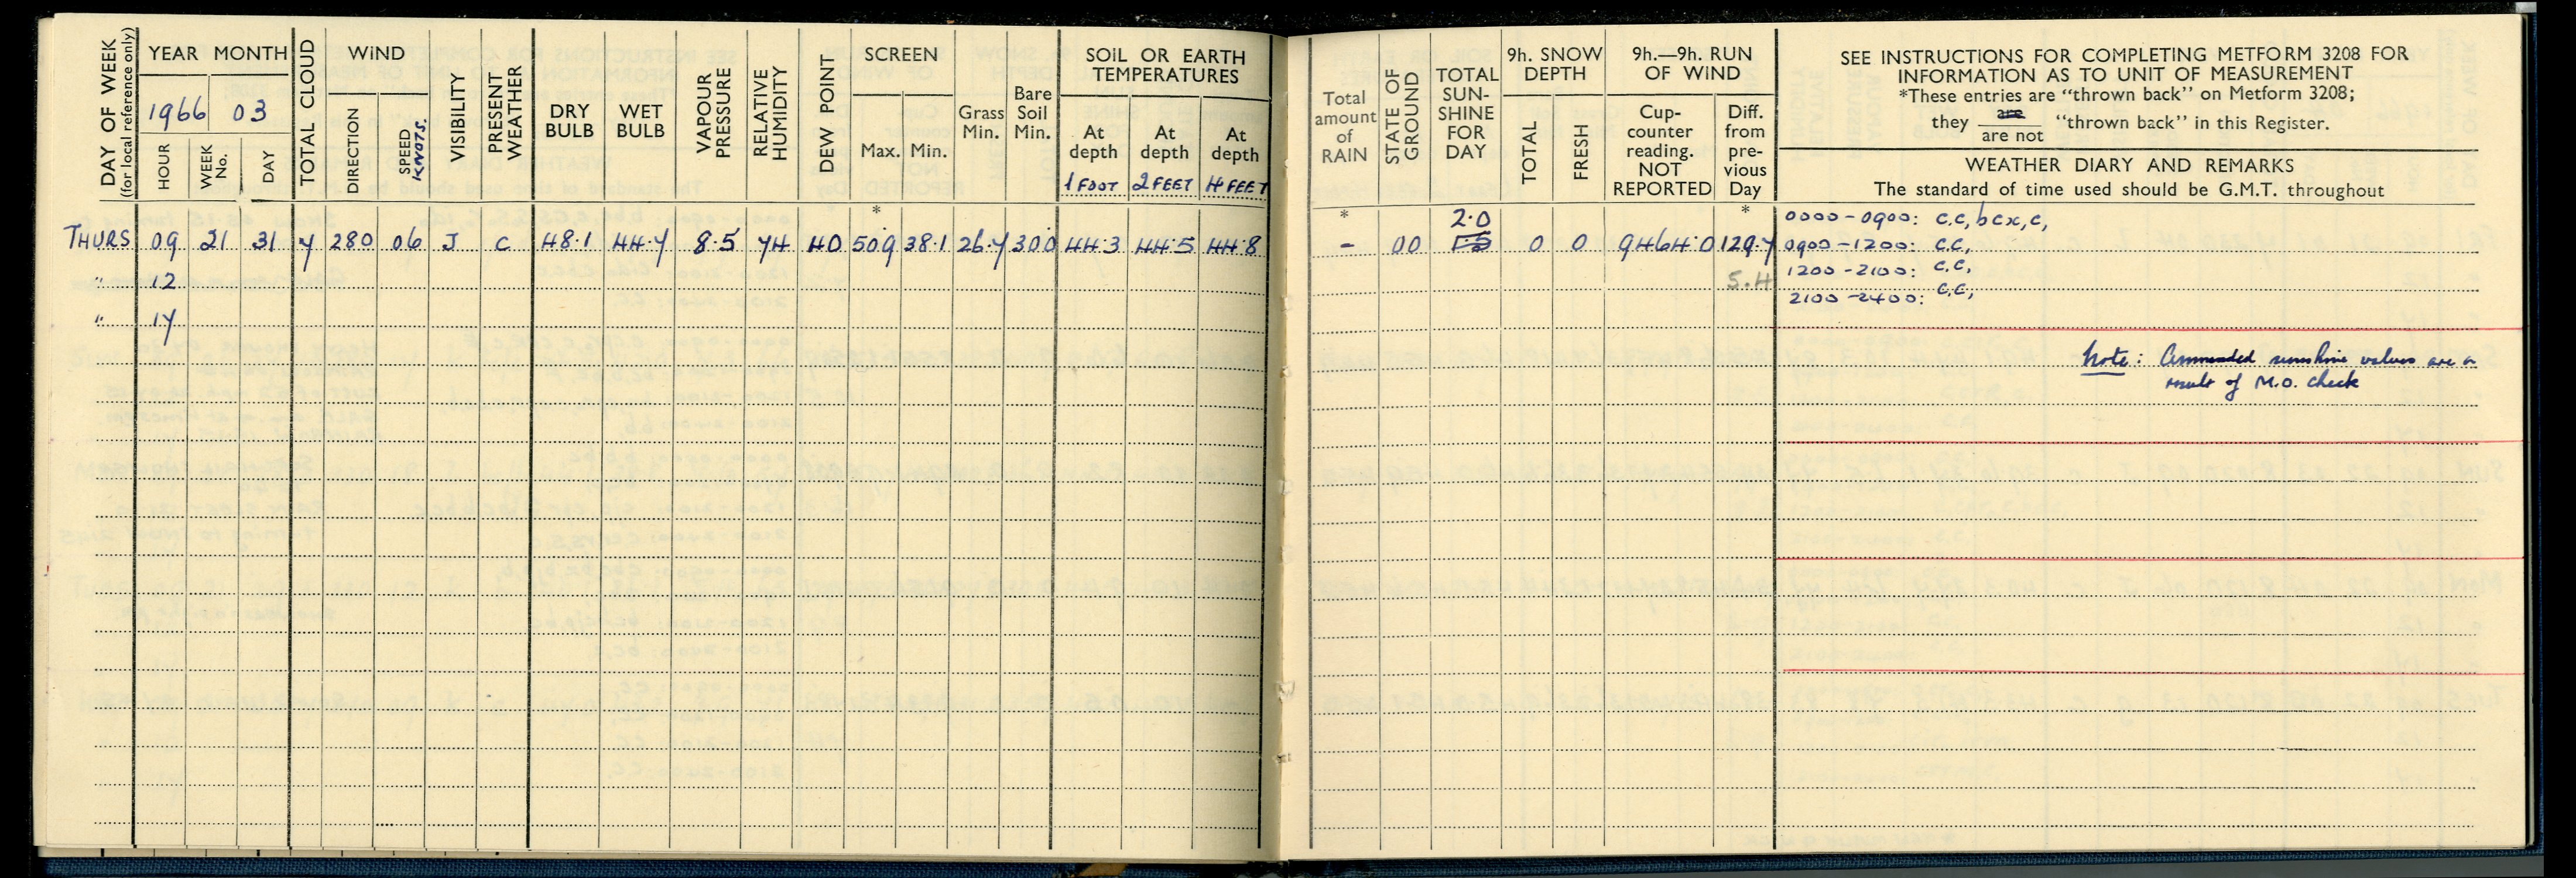 DAY OF WEEK
(for local reference only)
YEAR MONTH
1966 03
HOUR
WEEK No.
DAY
TOTAL CLOUD
WIND
DIRECTION
SPEED KNOTS.
VISIBILITY
PRESENT WEATHER
DRY BULB
WET BULB
VAPOUR PRESSURE
RELATIVE HUMIDITY
DEW POINT
SCREEN
Max. Min.
Grass Min.
Bare Soil Min.
SOIL OR EARTH TEMPERATURES
At depth 1 FOOT
At depth 2 FEET
At depth 4 FEET
Total amount of RAIN
STATE OF GROUND
TOTAL SUN-SHINE FOR DAY
9h. SNOW DEPTH
TOTAL
FRESH
9h.—9h. RUN OF WIND
Cup-counter reading. NOT REPORTED
Diff. from pre-vious Day
SEE INSTRUCTIONS FOR COMPLETING METFORM 3208 FOR
INFORMATION AS TO UNIT OF MEASUREMENT
*These entries are "thrown back" on Metform 3208;
they are / are not "thrown back" in this Register.
WEATHER DIARY AND REMARKS
The standard of time used should be G.M.T. throughout
* * *
2.0
THURS 09 21 31 7 280 06 J C 48.1 44.7 8.5 74 40 50.9 38.1 26.7 30.0 44.3 44.5 44.8 - 00 0 0 9464.0 129.7
" 12 5.4
" 17
0000 - 0900: c,c, bcx, c,
0900 - 1200: c,c,
1200 - 2100: c,c,
2100 - 2400: c,c,
Note: Ammended sunshine values are a
result of M.O. check